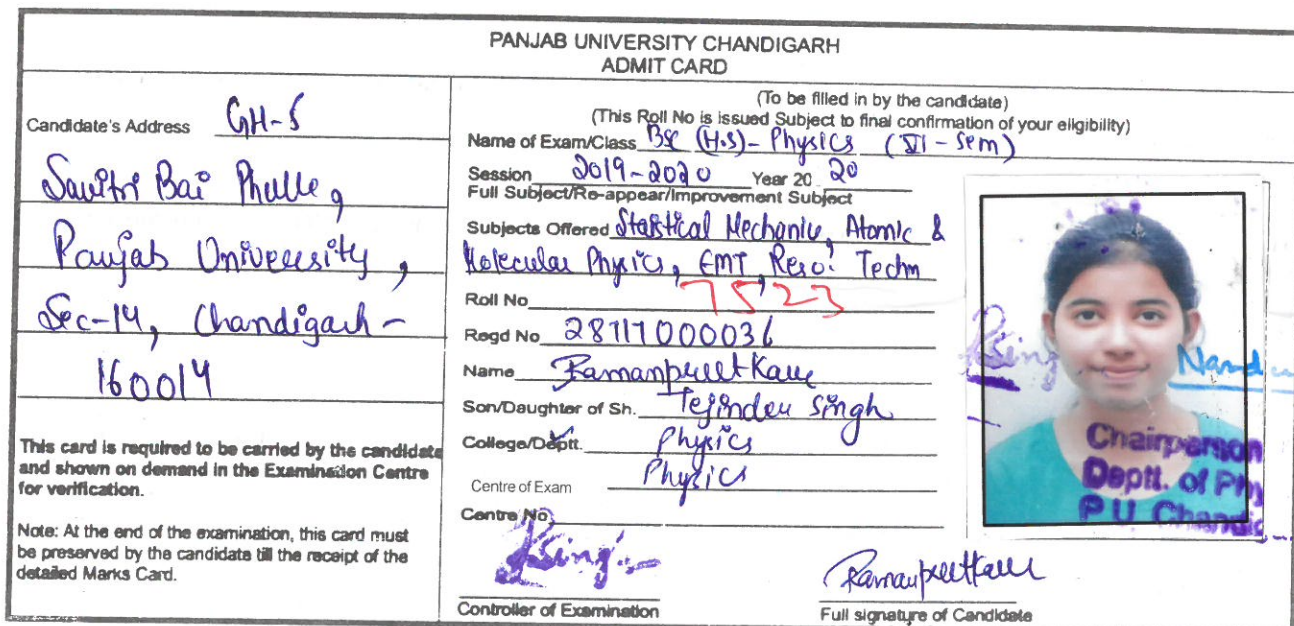 PANJAB UNIVERSITY CHANDIGARH
ADMIT CARD
Candidate's Address GH-5
Savitri Bai Phulle,
Panjab University,
Sec-14, Chandigarh-
160014
This card is required to be carried by the candidate
and shown on demand in the Examination Centre
for verification.
Note: At the end of the examination, this card must
be preserved by the candidate till the receipt of the
detailed Marks Card.
(To be filled in by the candidate)
(This Roll No is issued Subject to final confirmation of your eligibility)
Name of Exam/Class BSc (H.S)- Physics (VI-sem)
Session 2019-2020 Year 20 20
Full Subject/Re-appear/Improvement Subject
Subjects Offered Statistical Mechanic, Atomic &
Molecular Physics, EMT, Reso. Techn
Roll No 7523
Regd No 28717000036
Name Ramanpreet Kaur
Son/Daughter of Sh. Tejinder Singh
College/Deptt. Physics
Centre of Exam Physics
Centre No
KSingh
Controller of Examination
Ramanpreet Kaur
Full signature of Candidate
Chairperson
Deptt. of Phy
P U Chandi